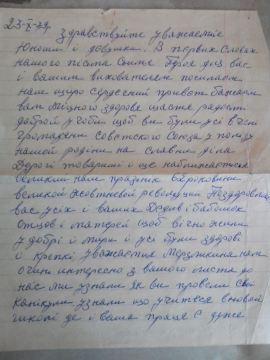 23-X-79.
Здравствуйте уважаємиє
Юноши і довушки. В первих словах
нашого письма
і вашим вихователем посилаєм
вам щиро сердечний привєт бажаєм
вам міцного здоровя щастя радост
доброй учоби щоб ви були усі вєчн
громодяне Совєтского Союза у пользу
нашей родіни на славниє діла
Дорогі товариші і ще наближаєтся
великий нам празник Єіриковини
великой Жовтневой революции Поздоровляєм
вас усіх і ваших Дєдив і бабошок
отцов і матерєй щоб вічно жили
у добрі і мири і усі були здорові
і крепкі уважаємиє нам
очинь интересно з вашого письма до
нас ми узнали як ви провели свої
каникули узнали що учитєся в новой
школі де і ваша праця є дуже